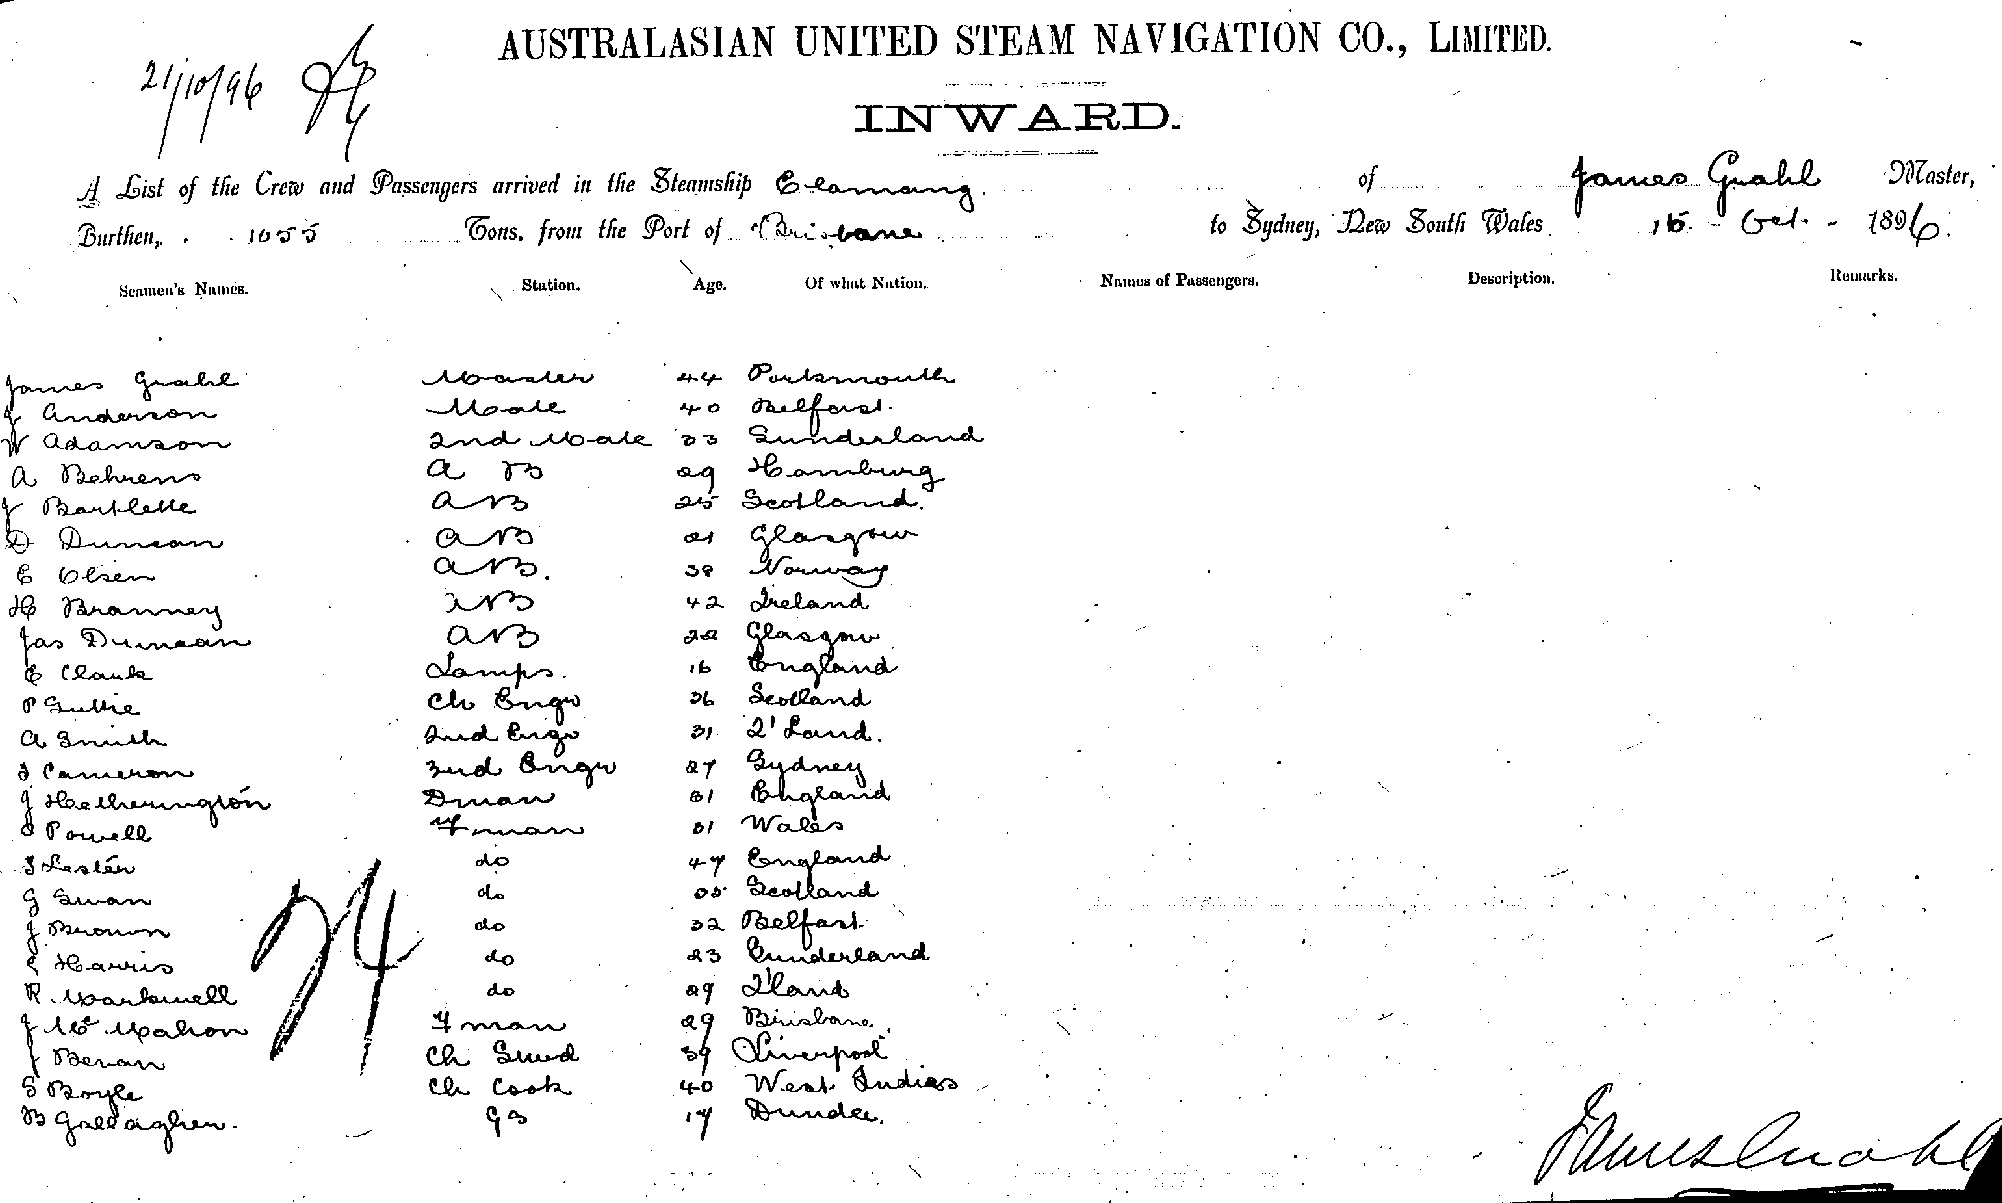 AUSTRALASIAN UNITED STEAM NAVIGATION CO., LIMITED.
21/10/96
INWARD.
A List of the Crew and Passengers arrived in the Steamship Elamang. of James Grahl Master,
Burthen, 1055 Tons, from the Port of Brisbane to Sydney, New South Wales Oct. 1896.
Seamen's Names. Station. Age. Of what Nation. Names of Passengers. Description. Remarks.
James Grahl Master 44 Portsmouth
J Anderson Mate 40 Belfast.
W Adamson 2nd Mate 33 Sunderland
A Behrens A B 29 Hamburg
J Bartlette AB 25 Scotland.
D Duncan AB 21 Glasgow
E Olsen AB. 38 Norway
H Branney AB 42 Ireland
Jas Duncan AB 22 Glasgow
E Clark Lamps. 16 England
P Ch Engr 36 Scotland
A Smith 2nd Engr 31 Land.
Cameron 3nd Engr 27 Sydney
J Hetherington Dman 31 England
Powell Fman 31 Wales
Lester do 47 England
G Swan do 35 Scotland
J Brown do 32 Belfast
Harris do 23 Sunderland
R. Markwell do 29 I'land
J Mc Mahon Fman 29 Brisbane.
J Bevan Ch Stwd 39 Liverpool
S Boyle Ch Cook 40 West Indies
B Gallagher. GS 17 Dundee.
24
James Grahl